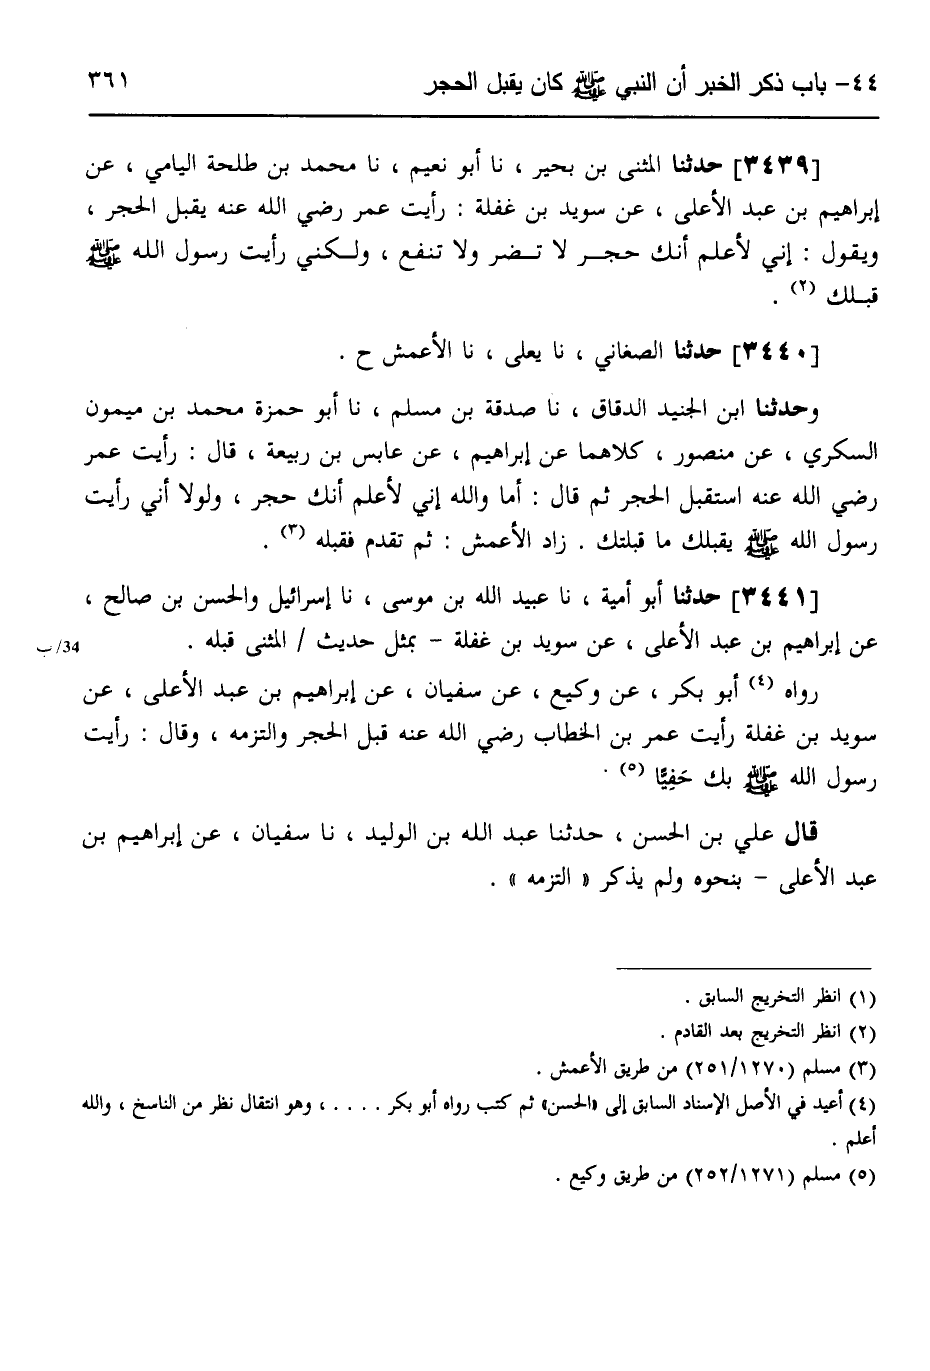 ٤٤- باب ذكر الخبر أن النبي ﷺ كان يقبل الحجر ٣٦١
[٣٤٣٩] حدثنا المثنى بن بحير ، نا أبو نعيم ، نا محمد بن طلحة اليامي ، عن
إبراهيم بن عبد الأعلى ، عن سويد بن غفلة : رأيت عمر رضي الله عنه يقبل الحجر ،
ويقول : إني لأعلم أنك حجر لا تضر ولا تنفع ، ولكني رأيت رسول الله ﷺ
قبلك (٢) .
[٣٤٤٠] حدثنا الصغاني ، نا يعلى ، نا الأعمش ح .
وحدثنا ابن الجنيد الدقاق ، نا صدقة بن مسلم ، نا أبو حمزة محمد بن ميمون
السكري ، عن منصور ، كلاهما عن إبراهيم ، عن عابس بن ربيعة ، قال : رأيت عمر
رضي الله عنه استقبل الحجر ثم قال : أما والله إني لأعلم أنك حجر ، ولولا أني رأيت
رسول الله ﷺ يقبلك ما قبلتك . زاد الأعمش : ثم تقدم فقبله (٣) .
[٣٤٤١] حدثنا أبو أمية ، نا عبيد الله بن موسى ، نا إسرائيل والحسن بن صالح ،
عن إبراهيم بن عبد الأعلى ، عن سويد بن غفلة - بمثل حديث / المثنى قبله . 34/ب
رواه (٤) أبو بكر ، عن وكيع ، عن سفيان ، عن إبراهيم بن عبد الأعلى ، عن
سويد بن غفلة رأيت عمر بن الخطاب رضي الله عنه قبل الحجر والتزمه ، وقال : رأيت
رسول الله ﷺ بك حَفِيًّا (٥) .
قال علي بن الحسن ، حدثنا عبد الله بن الوليد ، نا سفيان ، عن إبراهيم بن
عبد الأعلى - بنحوه ولم يذكر « التزمه » .
(١) انظر التخريج السابق .
(٢) انظر التخريج بعد القادم .
(٣) مسلم (٢٥١/١٢٧٠) من طريق الأعمش .
(٤) أعيد في الأصل الإسناد السابق إلى «الحسن» ثم كتب رواه أبو بكر . . . . ، وهو انتقال نظر من الناسخ ، والله
أعلم .
(٥) مسلم (٢٥٢/١٢٧١) من طريق وكيع .